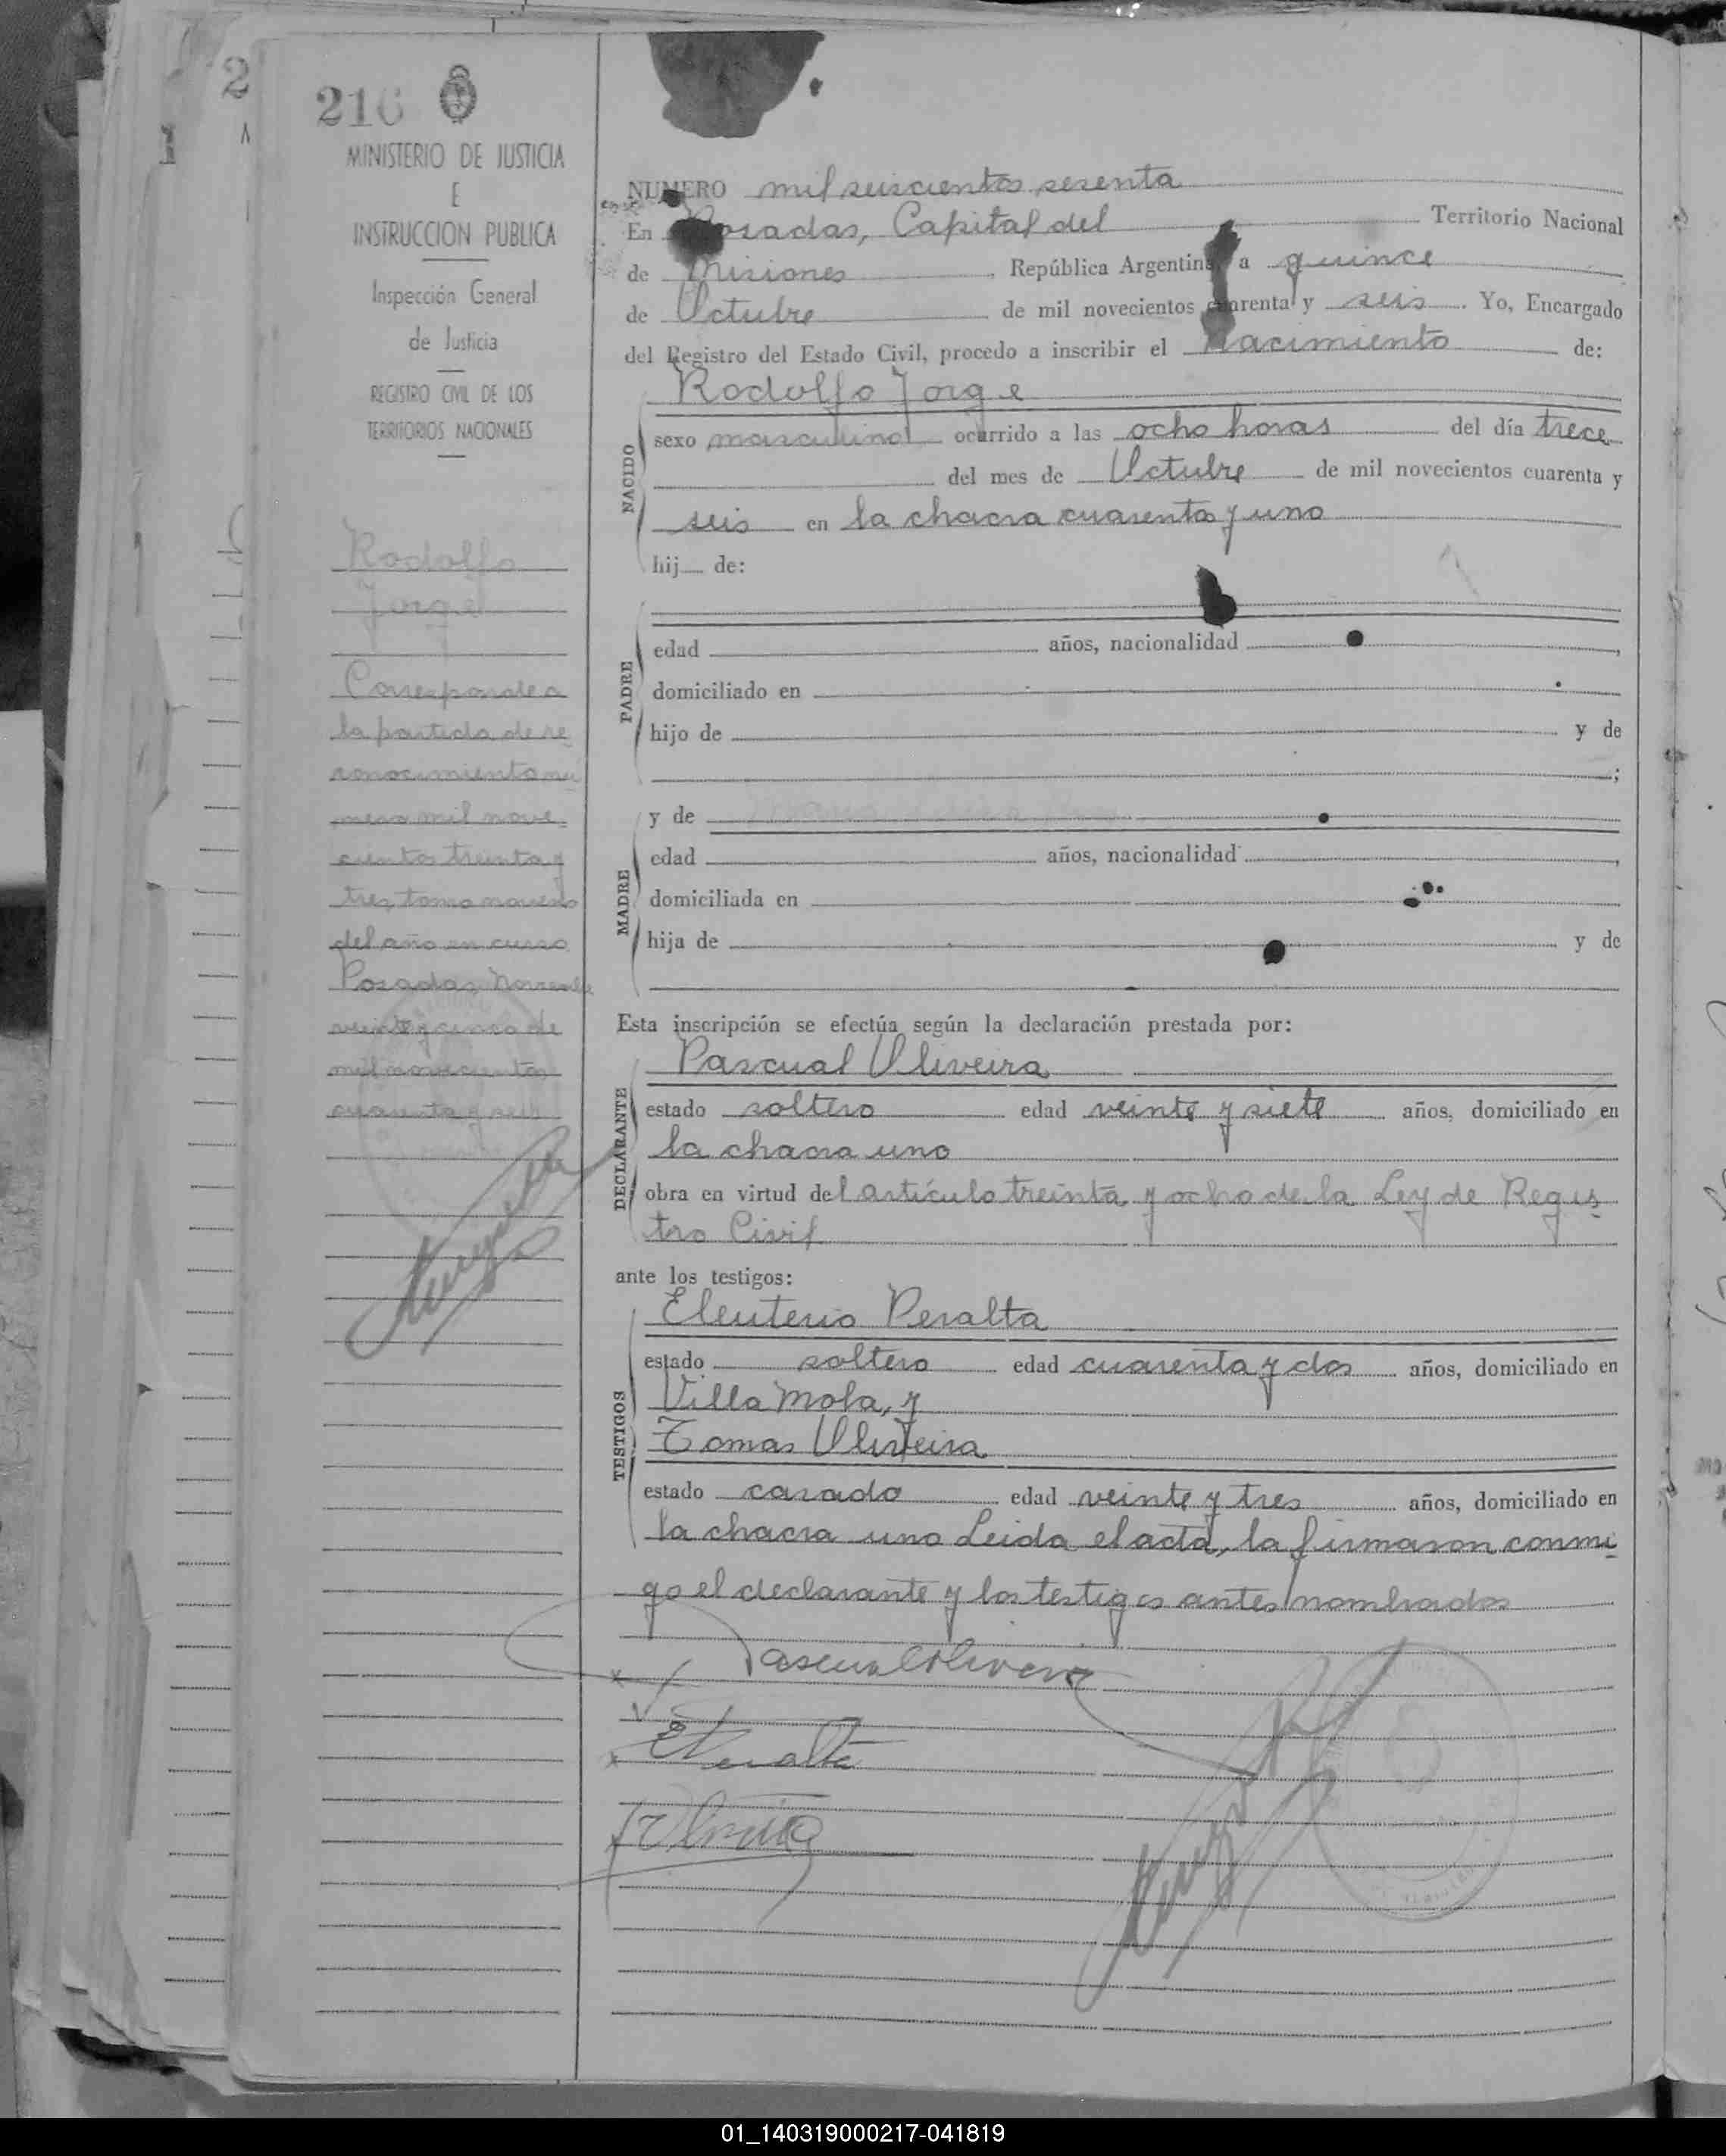 216
MINISTERIO DE JUSTICIA
E
INSTRUCCION PUBLICA
Inspección General
de Justicia
REGISTRO CIVIL DE LOS
TERRITORIOS NACIONALES
Rodolfo
Jorge
Corresponde a
la partida de re
conocimiento nu
mero mil nove
cientos treinta y
tres, tomo noveno
del año en curso
Posadas, Noviembre
veinte y cinco de
mil novecientos
cuarenta y seis
NUMERO mil seiscientos sesenta
En Posadas, Capital del Territorio Nacional
de Misiones República Argentina a quince
de Octubre de mil novecientos cuarenta y seis. Yo, Encargado
del Registro del Estado Civil, procedo a inscribir el Nacimiento de:
Rodolfo Jorge
NACIDO
sexo masculino ocurrido a las ocho horas del día trece
del mes de Octubre de mil novecientos cuarenta y
seis en la chacra cuarenta y uno
hij de:
PADRE
edad años, nacionalidad ,
domiciliado en
hijo de y de
;
y de
MADRE
edad años, nacionalidad ,
domiciliada en
hija de y de
Esta inscripción se efectúa según la declaración prestada por:
Pascual Oliveira
DECLARANTE
estado soltero edad veinte y siete años, domiciliado en
la chacra uno
obra en virtud del artículo treinta y ocho de la Ley de Regis
tro Civil
ante los testigos:
Eleuterio Peralta
TESTIGOS
estado soltero edad cuarenta y dos años, domiciliado en
Villa Mola, y
Tomas Oliveira
estado casado edad veinte y tres años, domiciliado en
la chacra uno Leida el acta, la firmaron conmi
go el declarante y los testigos antes nombrados
Pascual Oliveira
EPeralta
TOliveira
01_140319000217-041819